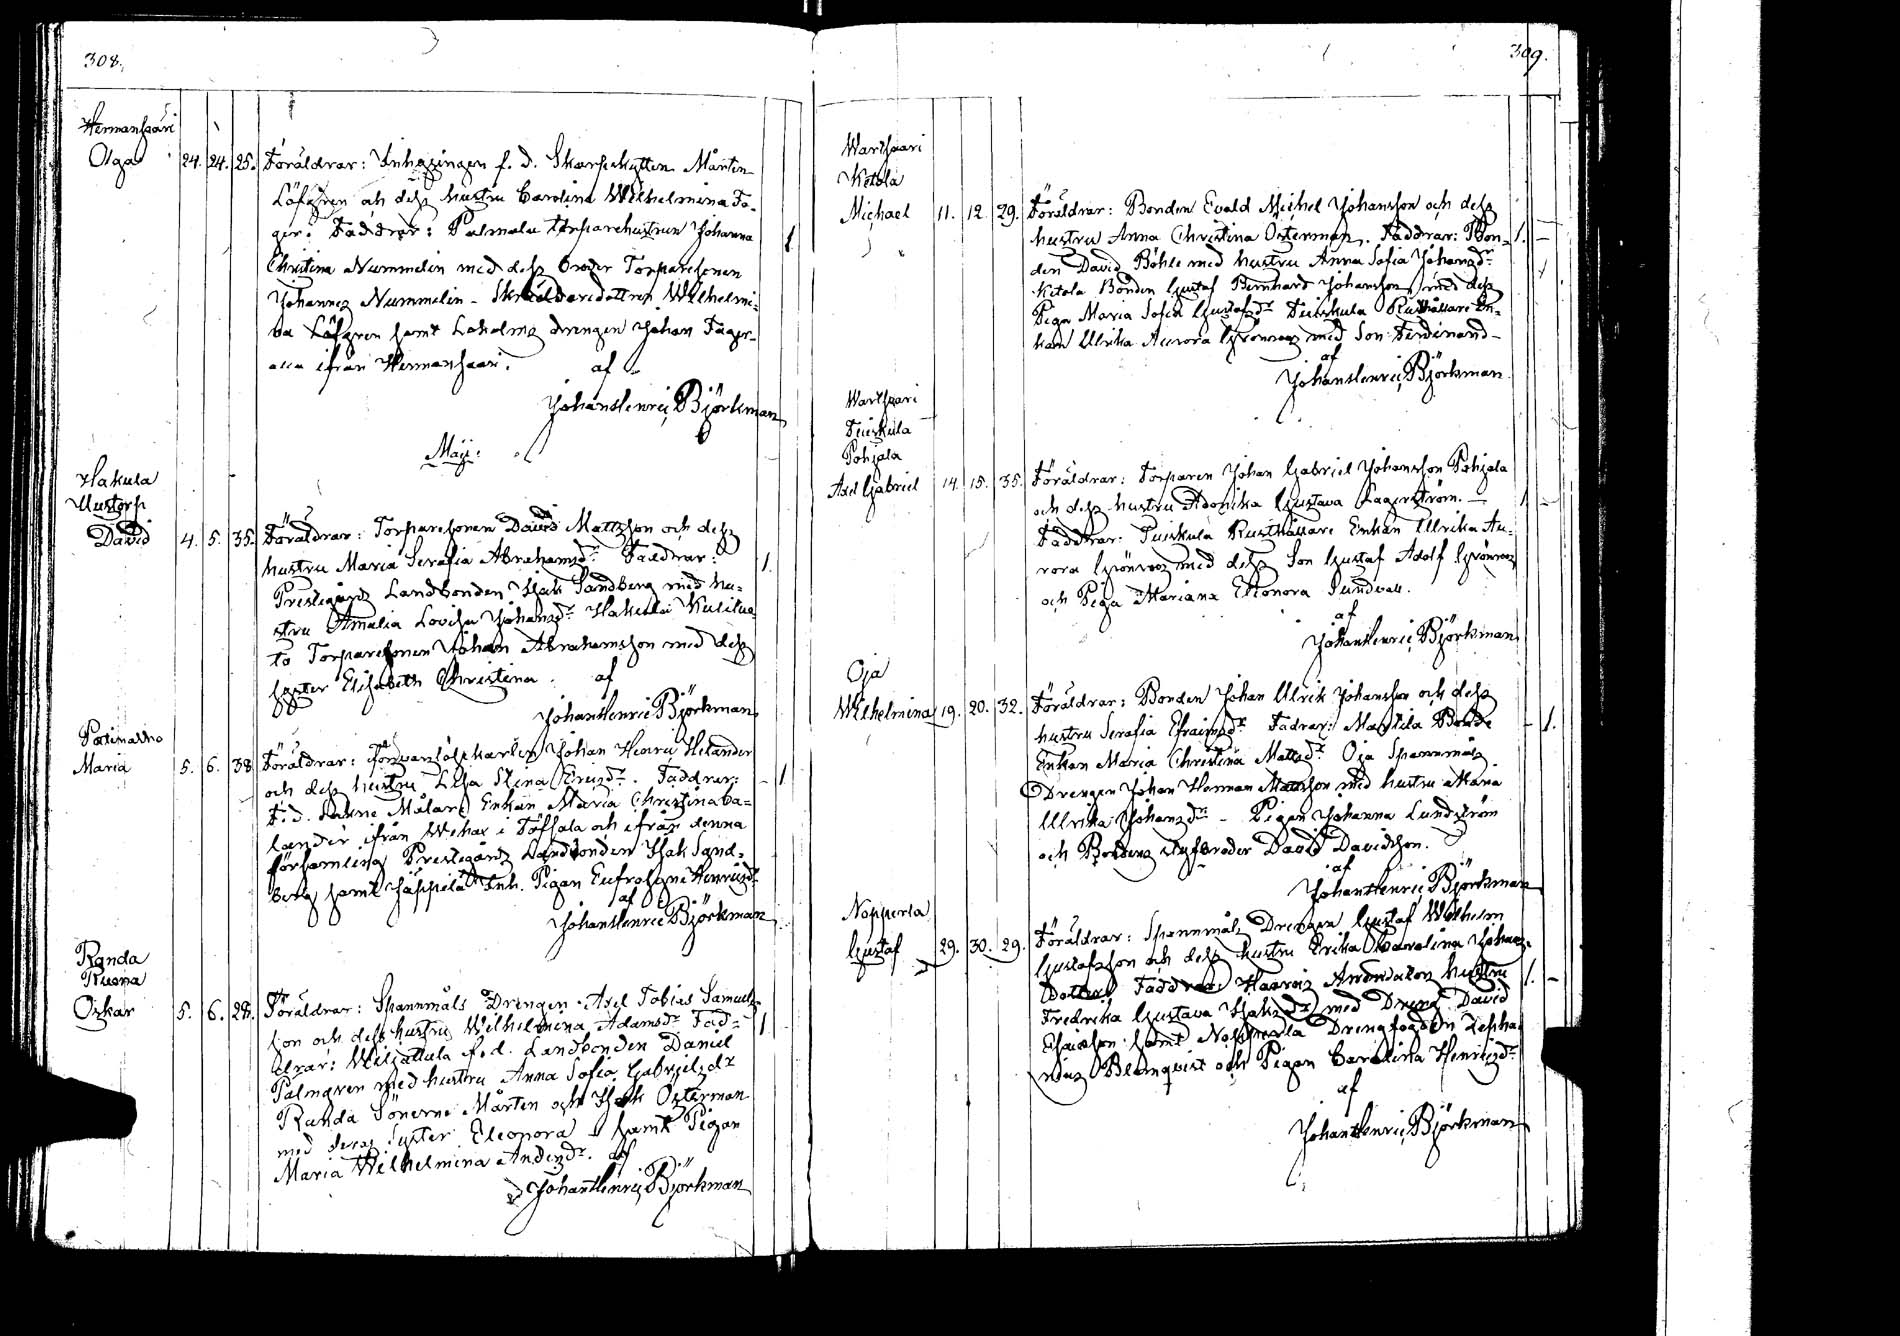 308.
Hermansaari
Olga 24. 24. 25. Föräldrar: Inhysingen f. d. Skarpskytten Mårten
Löfgren och dess hustru Carolina Wilhelmina Fa-
ger. Faddrar: Palmala torparehustrun Johanna
Christina Nummelin med dess broder Torparesonen 1
Johannes Nummelin - Skräddaredottren Wilhelmi-
na Löfgren samt Laholms drengen Johan Fager-
ifrån Hermansaari. af
Johan Henric Björkman
Maji:
Hakula
Nustorp
David 4. 5. 35. Föräldrar: Torparesonen David Mattsson och dess
hustru Maria Serafia Abrahamsdr. Faddrar: 1.
Prestegårds Landbonden Isak Sandberg med hu-
stru Amalia Lovisa Johansdr. Hakula
to Torparesonen Johan Abrahamsson med dess
syster Elisabeth Christina. af
Johan Henric Björkman
Maria 5. 6. 38 Föräldrar: Johan Henric Helander
och dess hustru Lisa Stina Ericsdr. Faddrar: - 1
F. d. Målare Enkan Maria Christina Ca-
lander ifrån Wehax i Töfsala och ifrån denna
församling Prestegårds Landbonden Isak Sand-
berg samt Jäppilä Inh. Pigan Eufrosyne Henricsdr
af
Johan Henric Björkman
Randa
Nuona
Oskar 5. 6. 28. Föräldrar: Spannmåls Drengen Axel Tobias Samuels-
son och dess hustru Wilhelmina Adamsdr. Fad- 1
drar: Wiljattula f. d. Landbonden Daniel
Palmgren med hustru Anna Sofia Gabrielsdr
Randa Sönerne Mårten och Isak Österman
med deras Syster Eleonora - samt Pigan
Maria Wilhelmina Andersdr. af
Johan Henric Björkman
309.
Wartsaari
Ketola
Michael 11. 12. 29. Föräldrar: Bonden Evald Michel Johansson och dess
hustru Anna Christina Österman. Faddrar: Bon- 1. -
den David Böhle med hustru Anna Sofia Johansdr.
Ketola Bonden Gustaf Bernhard Johansson med dess
Piga Maria Sofia Gustafsdr. Tuiskula Rusthållare En-
kan Ulrika Aurora Grönroos med Son Ferdinand -
af
Johan Henric Björkman.
Wartsaari
Tuiskula
Pohjala
Axel Gabriel 14. 15. 35. Föräldrar: Torparen Johan Gabriel Johansson Pohjala
och dess hustru Adonika Gustava Lagerström. - 1. -
Faddrar: Tuiskula Rusthållare Enkan Ulrika Au-
rora Grönroos med dess Son Gustaf Adolf Grönroos
och Piga Mariana Eleonora Sundvall.
af
Johan Henric Björkman
Oja
Wilhelmina 19. 20. 32. Föräldrar: Bonden Johan Ulrik Johansson och dess
hustru Serafia Efraimsdr. Fadrar: Mantila Bonde - 1.
Enkan Maria Christina Mattsdr. Oja Spannmåls
Drengen Johan Herman Mattsson med hustru Maria
Ulrika Johansdr. - Pigan Johanna Lundström
och Bondens styfbroder David Davidsson.
af
Johan Henric Björkman
Nopperla
Gustaf 29. 30. 29. Föräldrar: Spannmåls Drengen Gustaf Wilhelm
Gustafsson och dess hustru Erika Carolina Johans
Dotter. Faddrar: hustru 1. -
Fredrika Gustava Isaksdr. med Dreng David
Esaiasson samt Nopperla Drengfogden Zepha-
nias Blomqvist och Pigan Carolina Henricsdr.
af
Johan Henric Björkman